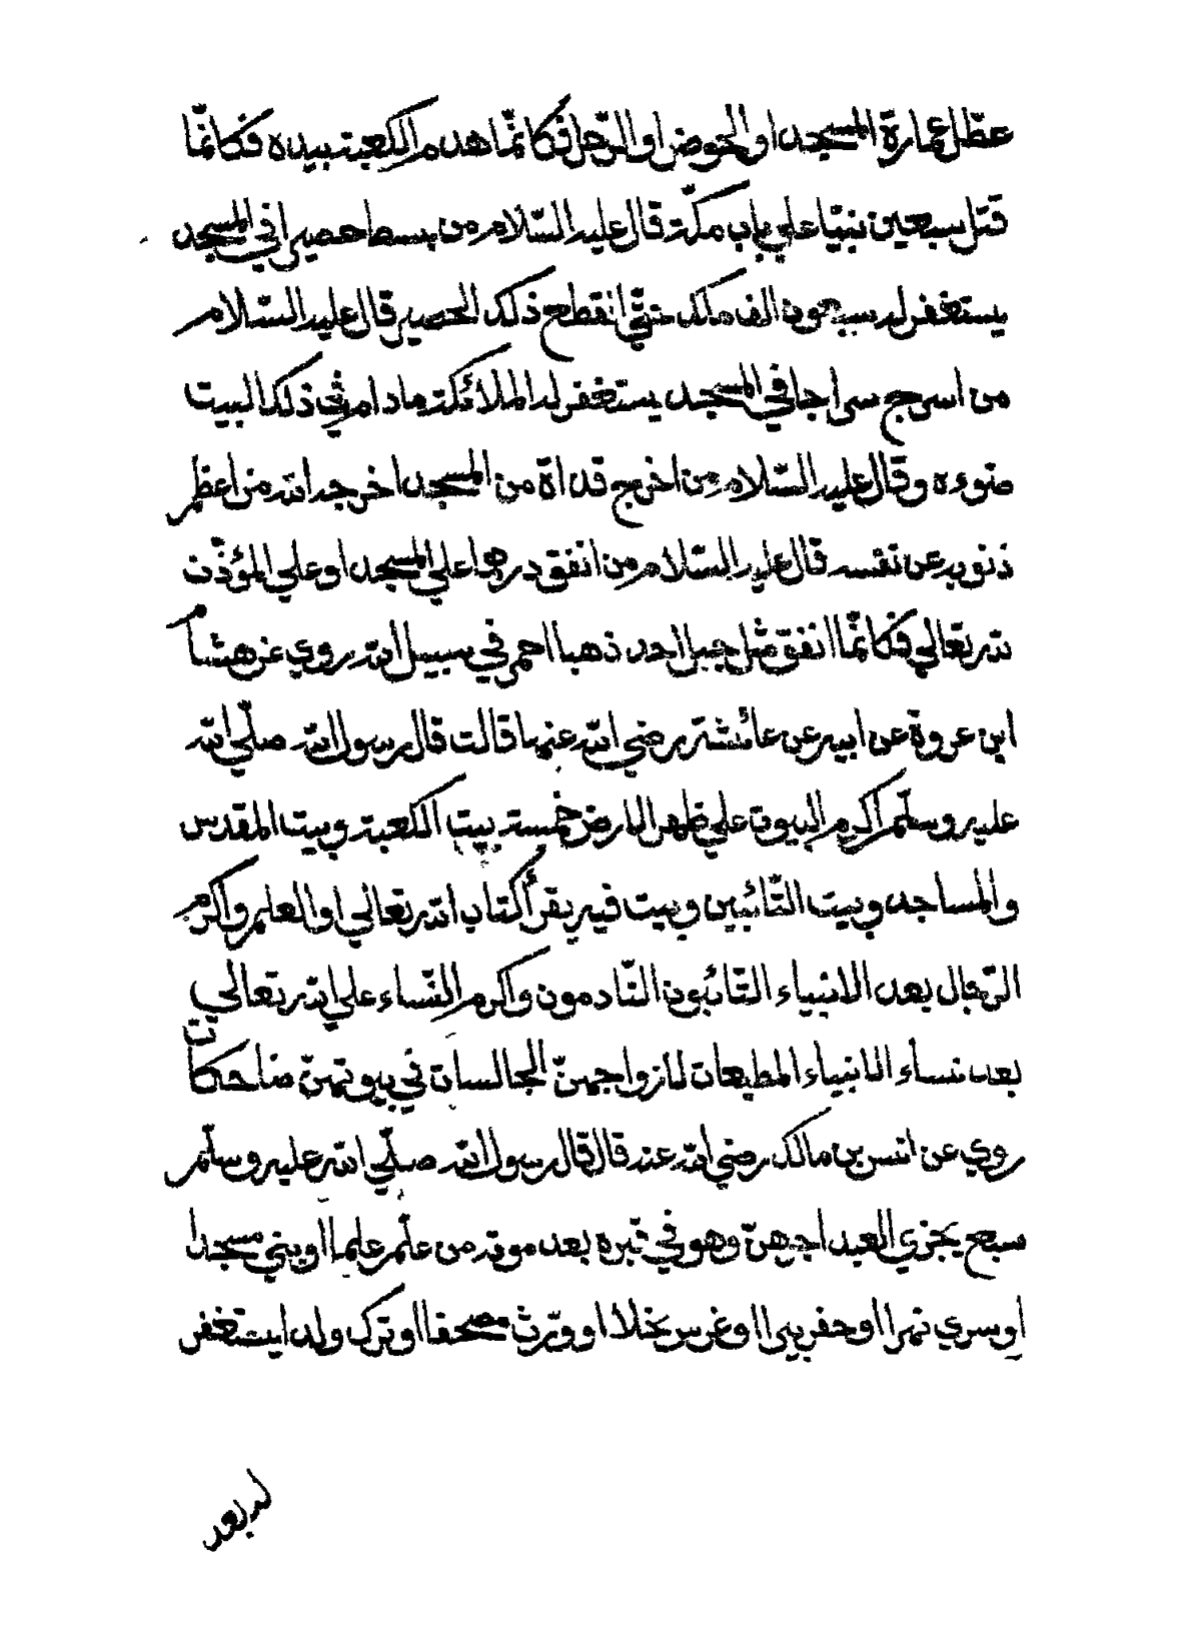 عطّل عمارة المسجد او الحوض او الرّجل فكانّما هدم الكعبة بيده فكانّما
قتل سبعين نبيّا علي باب مكّة قال عليه السّلام من بسط حصيرا في المسجد
يستغفر له سبعون الف ملك حتّي انقطع ذلك الحصير قال عليه السّلام
من اسرج سراجا في المسجد يستغفر له الملائكة مادام في ذلك البيت
ضوءه وقال عليه السّلام من اخرج قداة من المسجد اخرجه الله من اعظم
ذنوبه عن نفسه قال عليه السّلام من انفق درهما علي المسجد او علي المؤذّن
لله تعالي فكانّما انفق مثل جبل احد ذهبا احمر في سبيل الله روي عن هشام
ابن عروة عن ابيه عن عائشة رضي الله عنها قالت قال رسول الله صلّي الله
عليه وسلّم اكرم البيوت علي ظهر الارض خمسة بيت الكعبة وبيت المقدس
والمساجد وبيت التّائبين وبيت فيه يقرأ كتاب الله تعالي او العلم واكرم
الرّجال بعد الانبياء التّائبون النّادمون واكرم النّساء علي الله تعالي
بعد نساء الانبياء المطيعات لازواجهنّ الجالسات في بيوتهنّ ضاحكات
روي عن انس بن مالك رضي الله عنه قال قال رسول الله صلّي الله عليه وسلّم
سبع يجزي العبد اجرهنّ وهو في قبره بعد موته من علّم علما او بني مسجدا
او سري نهرا او حفر بيرا او غرس نخلا او ورّث مصحفا او ترك ولدا يستغفر
له بعد